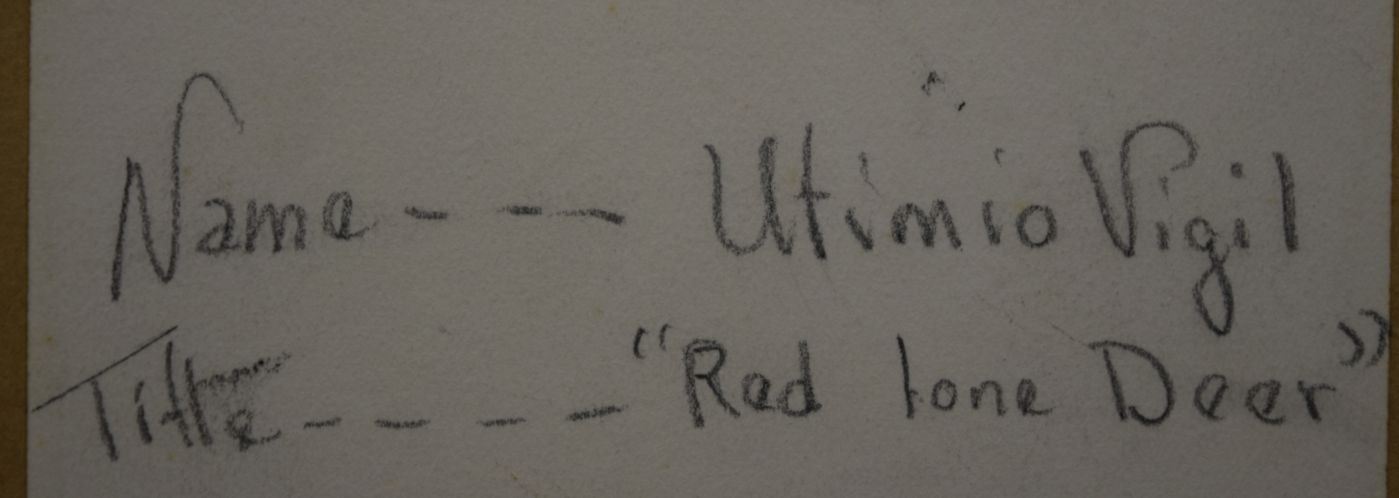 Name --- Utimio Vigil
Title ---- "Red lone Deer"